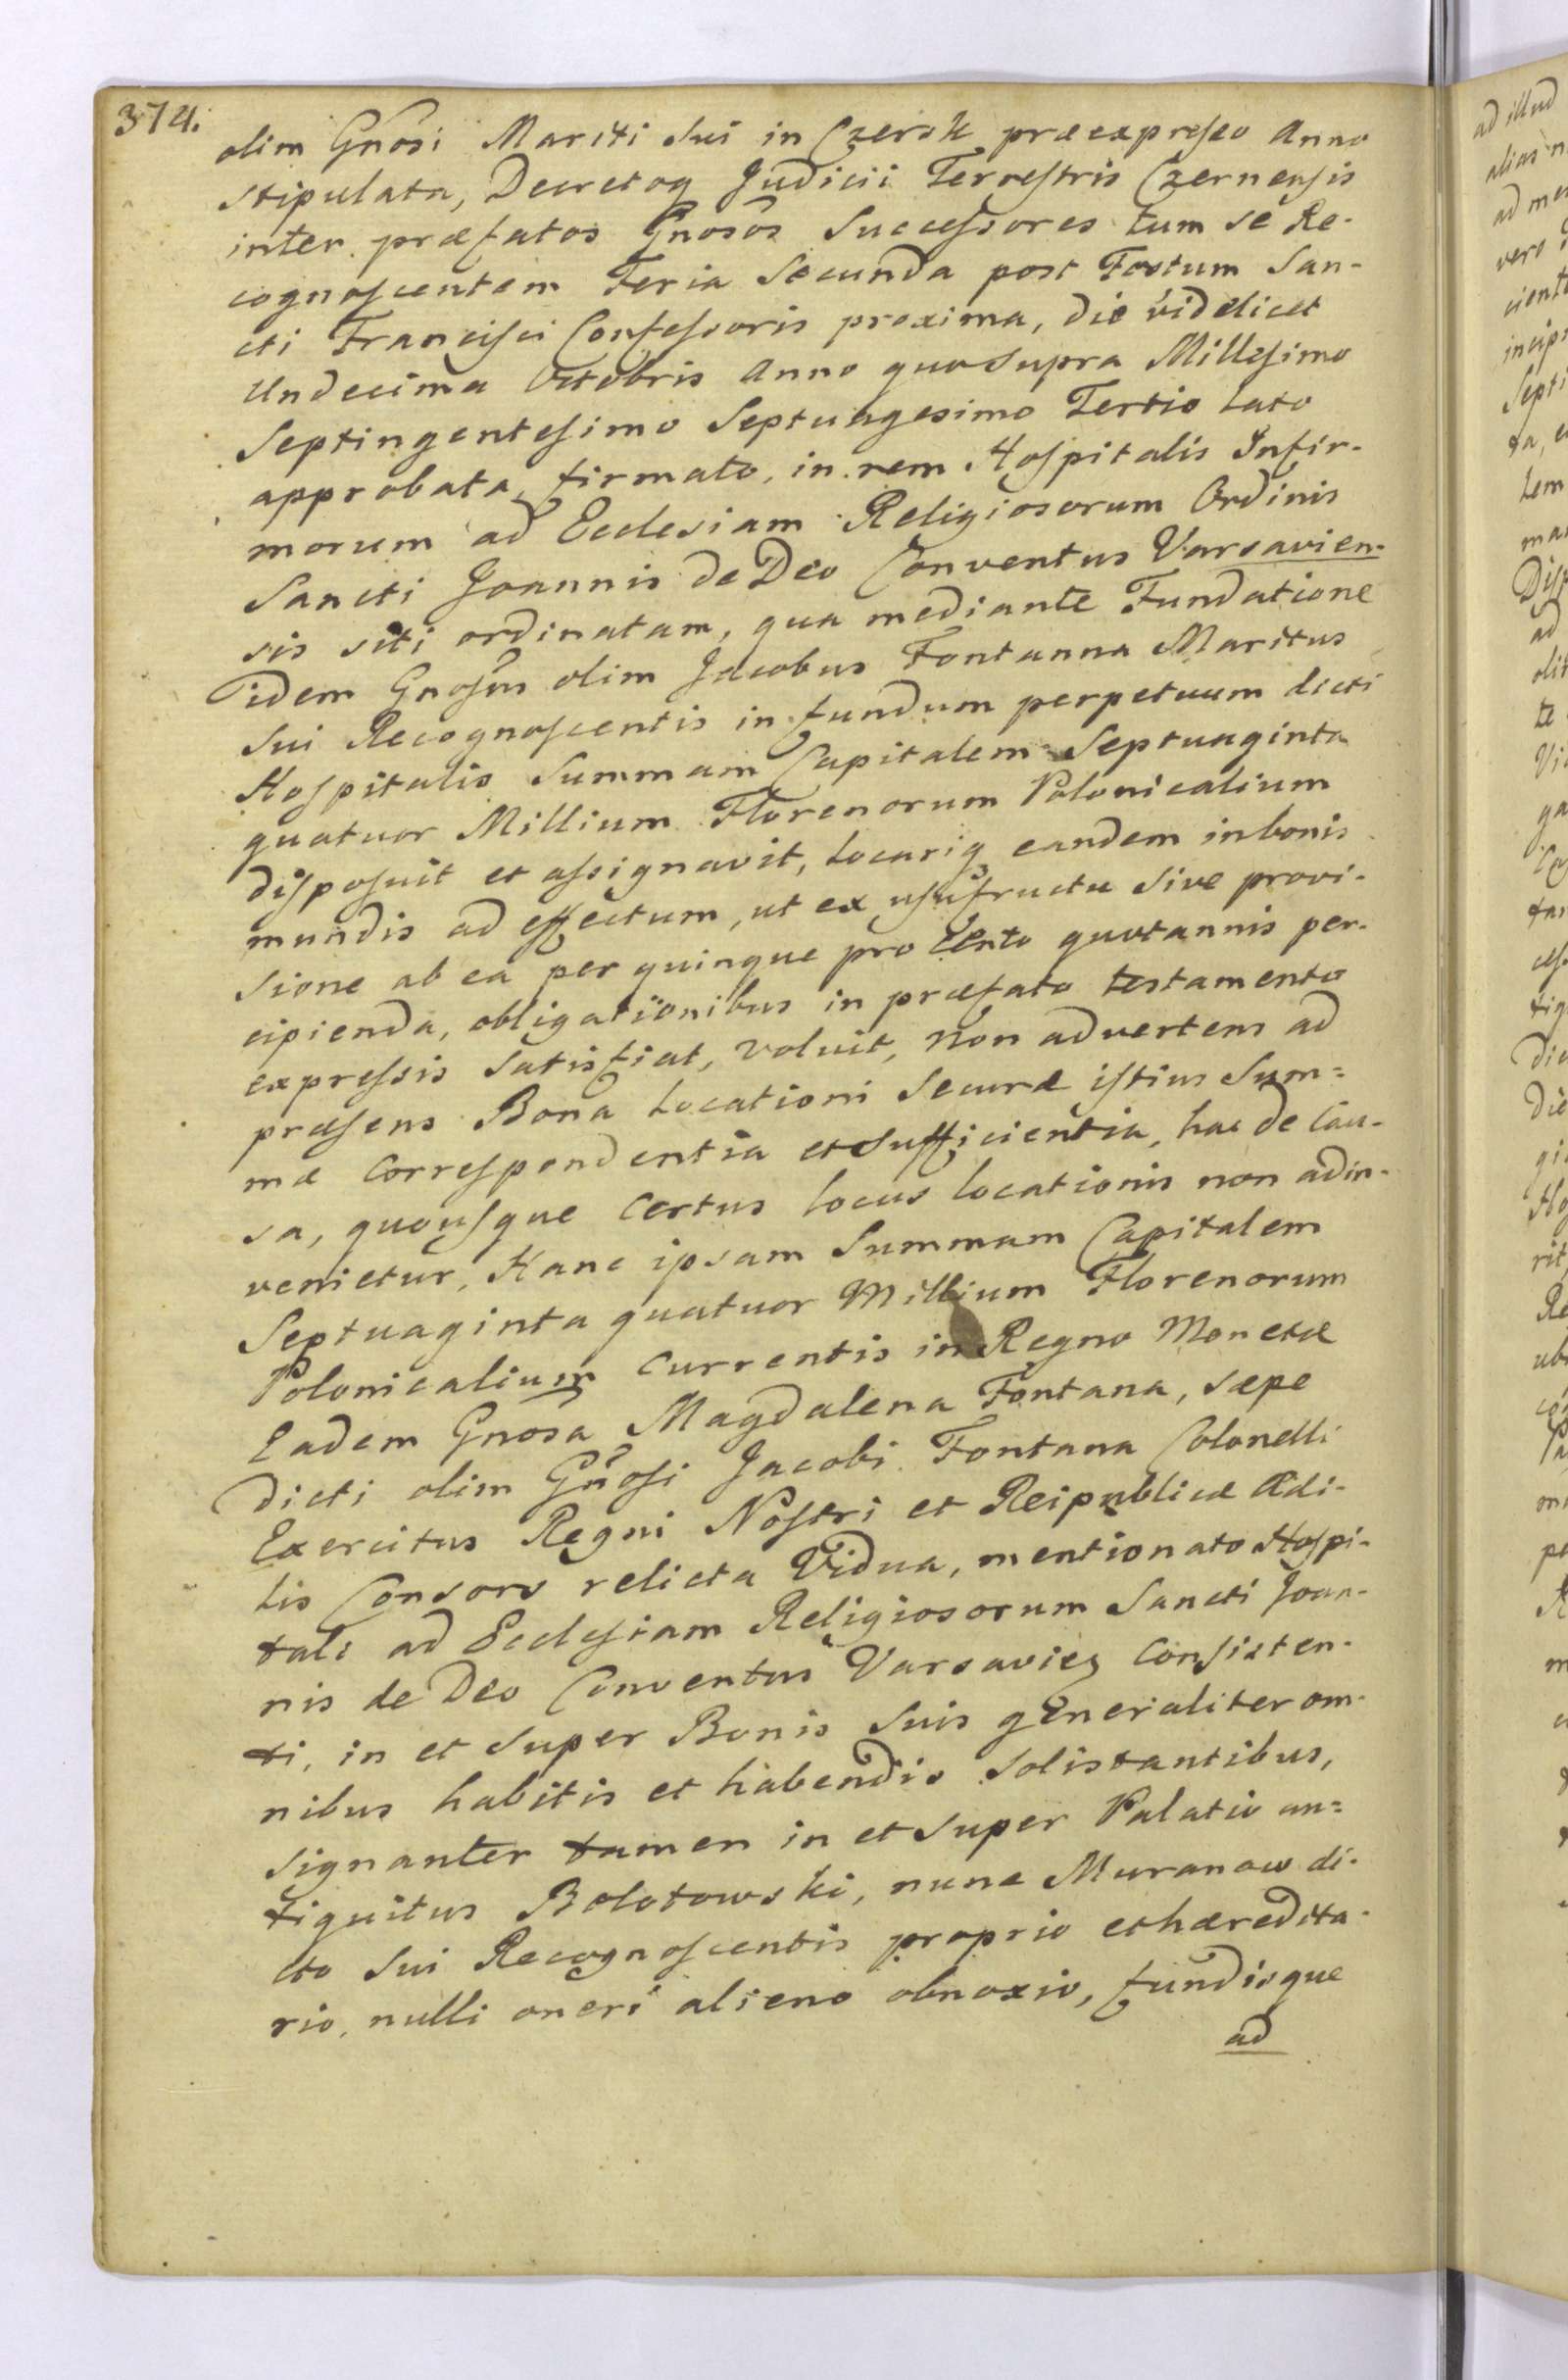 374.
olim Gnosi Mariti sui in Czersk præexpresso Anno
stipulata, Decretoq Judicii Terrestris Czernensis
inter præfatos Gnosos Successores tum se Re-
cognoscentem Feria Secunda post Festum San-
cti Francisci Confessoris proxima, die videlicet
Undecima Octobris Anno quo supra Millesimo
Septingentesimo Septuagesimo Tertio lato
approbata, firmato, in rem Hospitalis Infir-
morum ad Ecclesiam Religiosorum Ordinis
Sancti Joannis de Deo Conventus Varsavien-
sis siti ordinatam, qua mediante Fundatione
idem Gnosus olim Jacobus Fontanna Maritus
sui Recognoscentis in fundum perpetuum dicti
Hospitalis Summam Capitalem Septuaginta
quatuor Millium Florenorum Polonicalium
disposuit et assignavit, locariq eandem in bonis
mundis ad effectum, ut ex usufructu sive provi-
sione ab ea per quinque pro Cento quotannis per-
cipienda, obligationibus in præfato testamento
expressis satisfiat, voluit, non advertens ad
præsens Bona locationi securæ istius Sum=
mæ correspondentia et sufficientia, hac de Cau-
sa, quousque certus locus locationis non adin-
venietur, Hanc ipsam Summam Capitalem
Septuaginta quatuor Millium Florenorum
Polonicalium Currentis in Regno Monetæ
Eadem Gnosa Magdalena Fontana, sæpe
dicti olim Gnosi Jacobi Fontana Colonelli
Exercitus Regni Nostri et Reipublicæ Ædi-
lis Consors relicta Vidua, mentionato Hospi-
tali ad Ecclesiam Religiosorum Sancti Joan-
nis de Deo Conventus Varsavien consisten-
ti, in et super Bonis suis generaliter om-
nibus habitis et habendis solistantibus,
signanter tamen in et super Palatio an=
tiquitus Bolotowski, nunc Muranow di-
cto sui Recognoscentis proprio et hæredita-
rio, nulli oneri alieno obnoxio, fundisque
ad